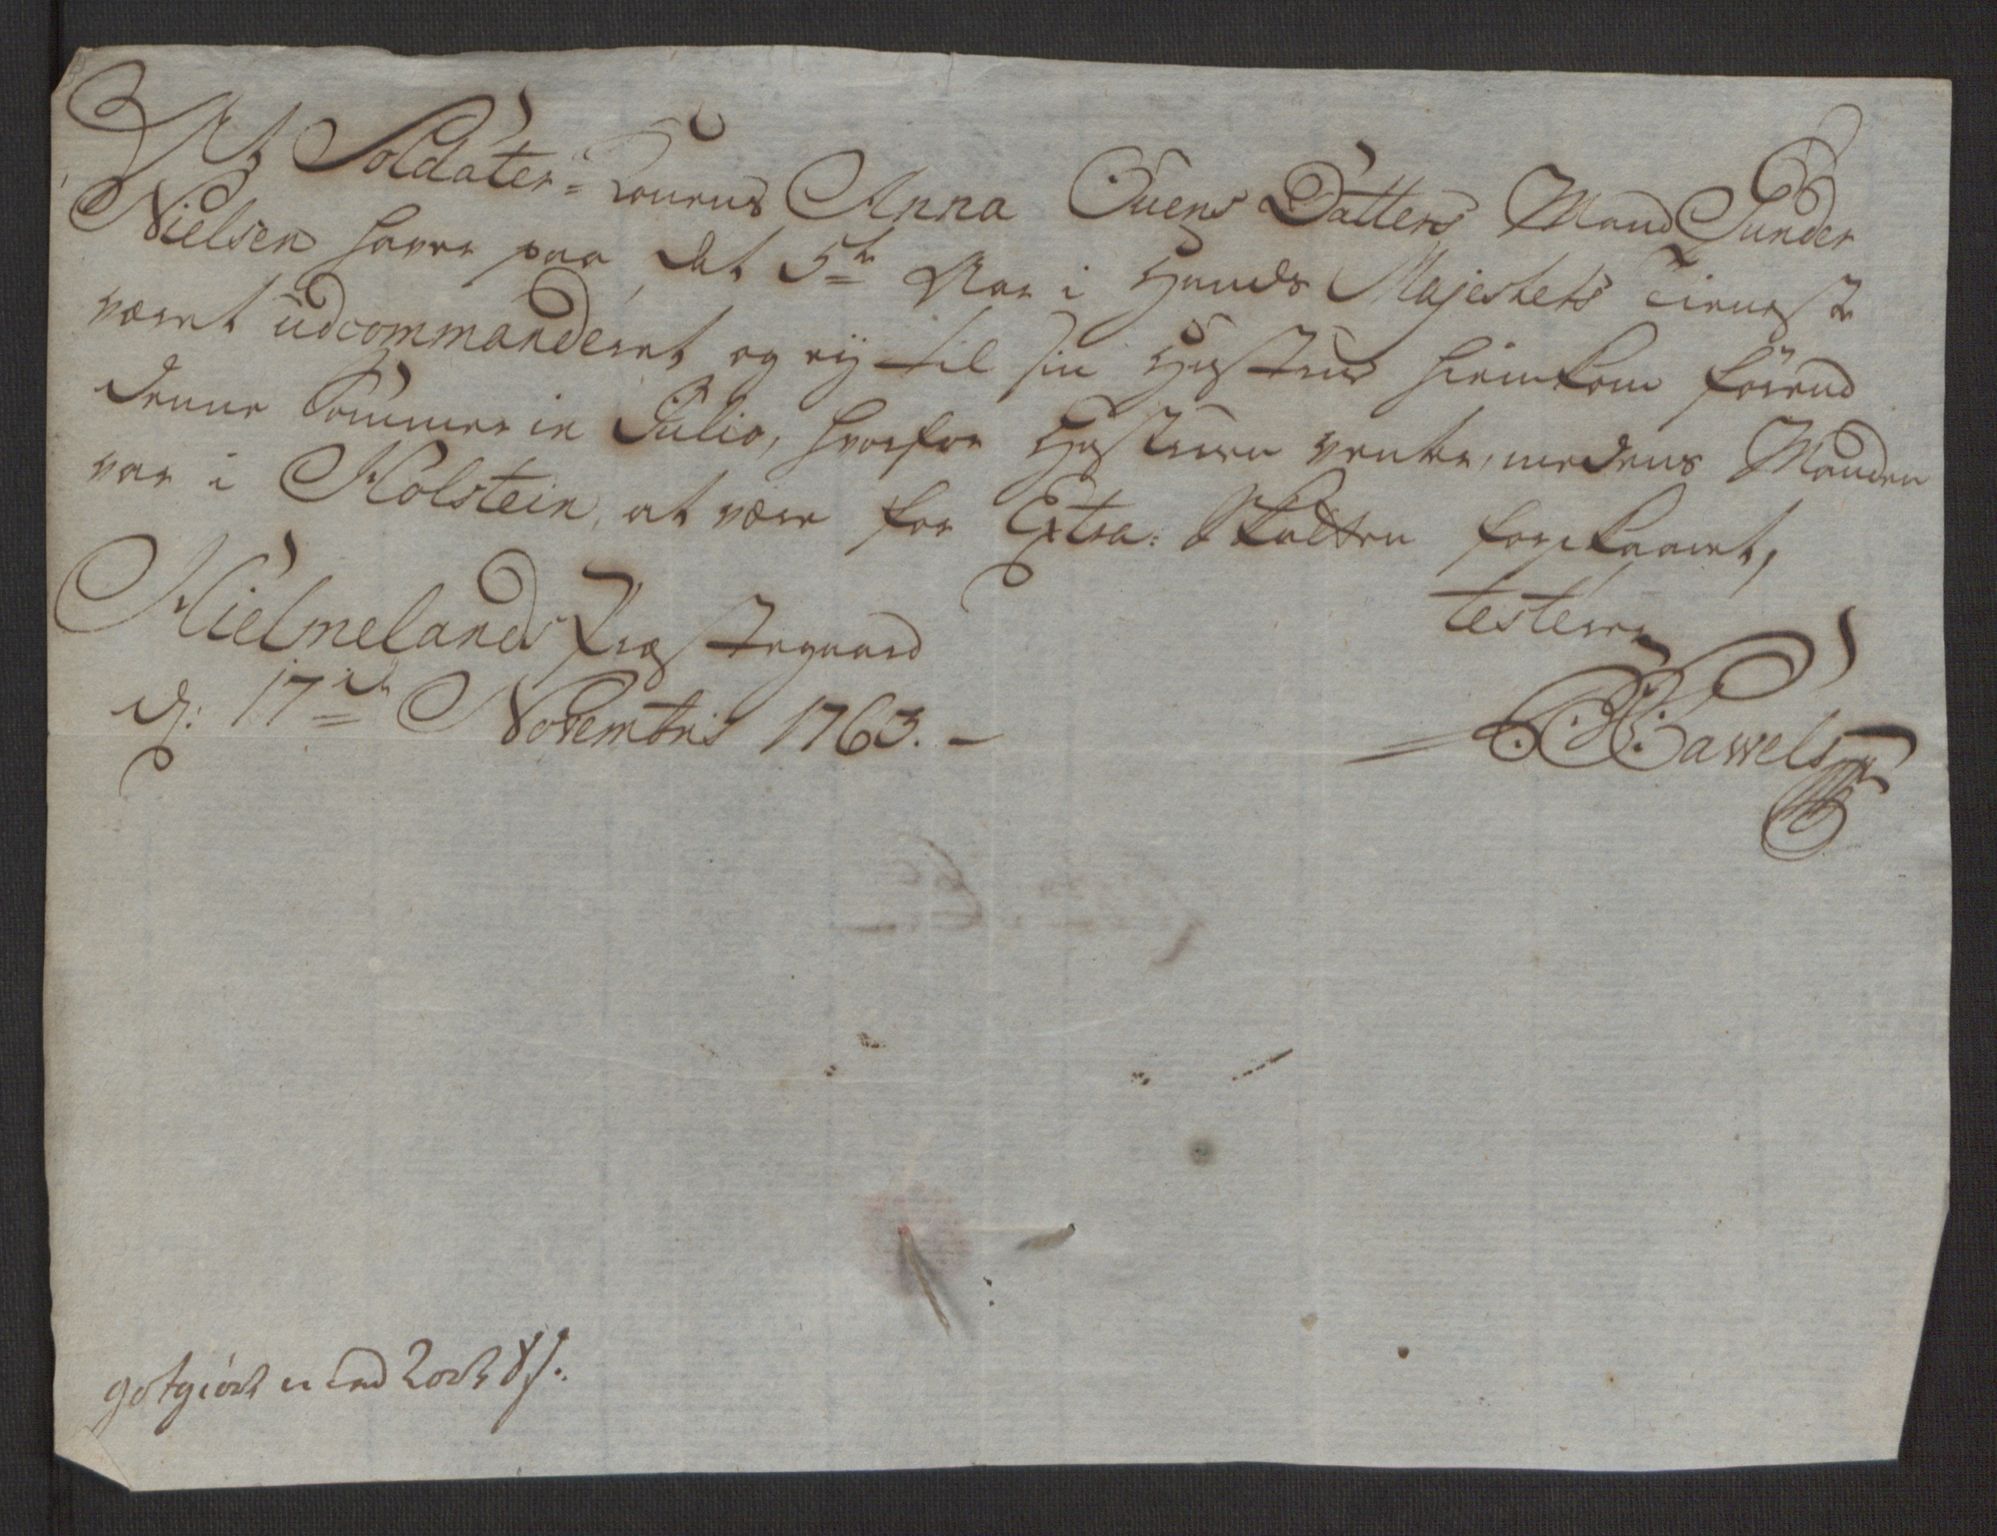 At Soldater-Konens Anna Øuens Datters Mand Gunder
Nielsen haver paa det 5te Aar i Hands Majestets Tieneste
været udcommanderet og ej til sin Hustrue hiemkom förend
denne Sommer in Julio, hvorfor Hustruen venter, medens Manden
var i Holstein, at være for Extra: Skatten forskaanet,
testerer
Hielmelands Præstegaard
d: 17de Novembris 1763. -
Hawels
gotgiort med 2 ort 8 s: